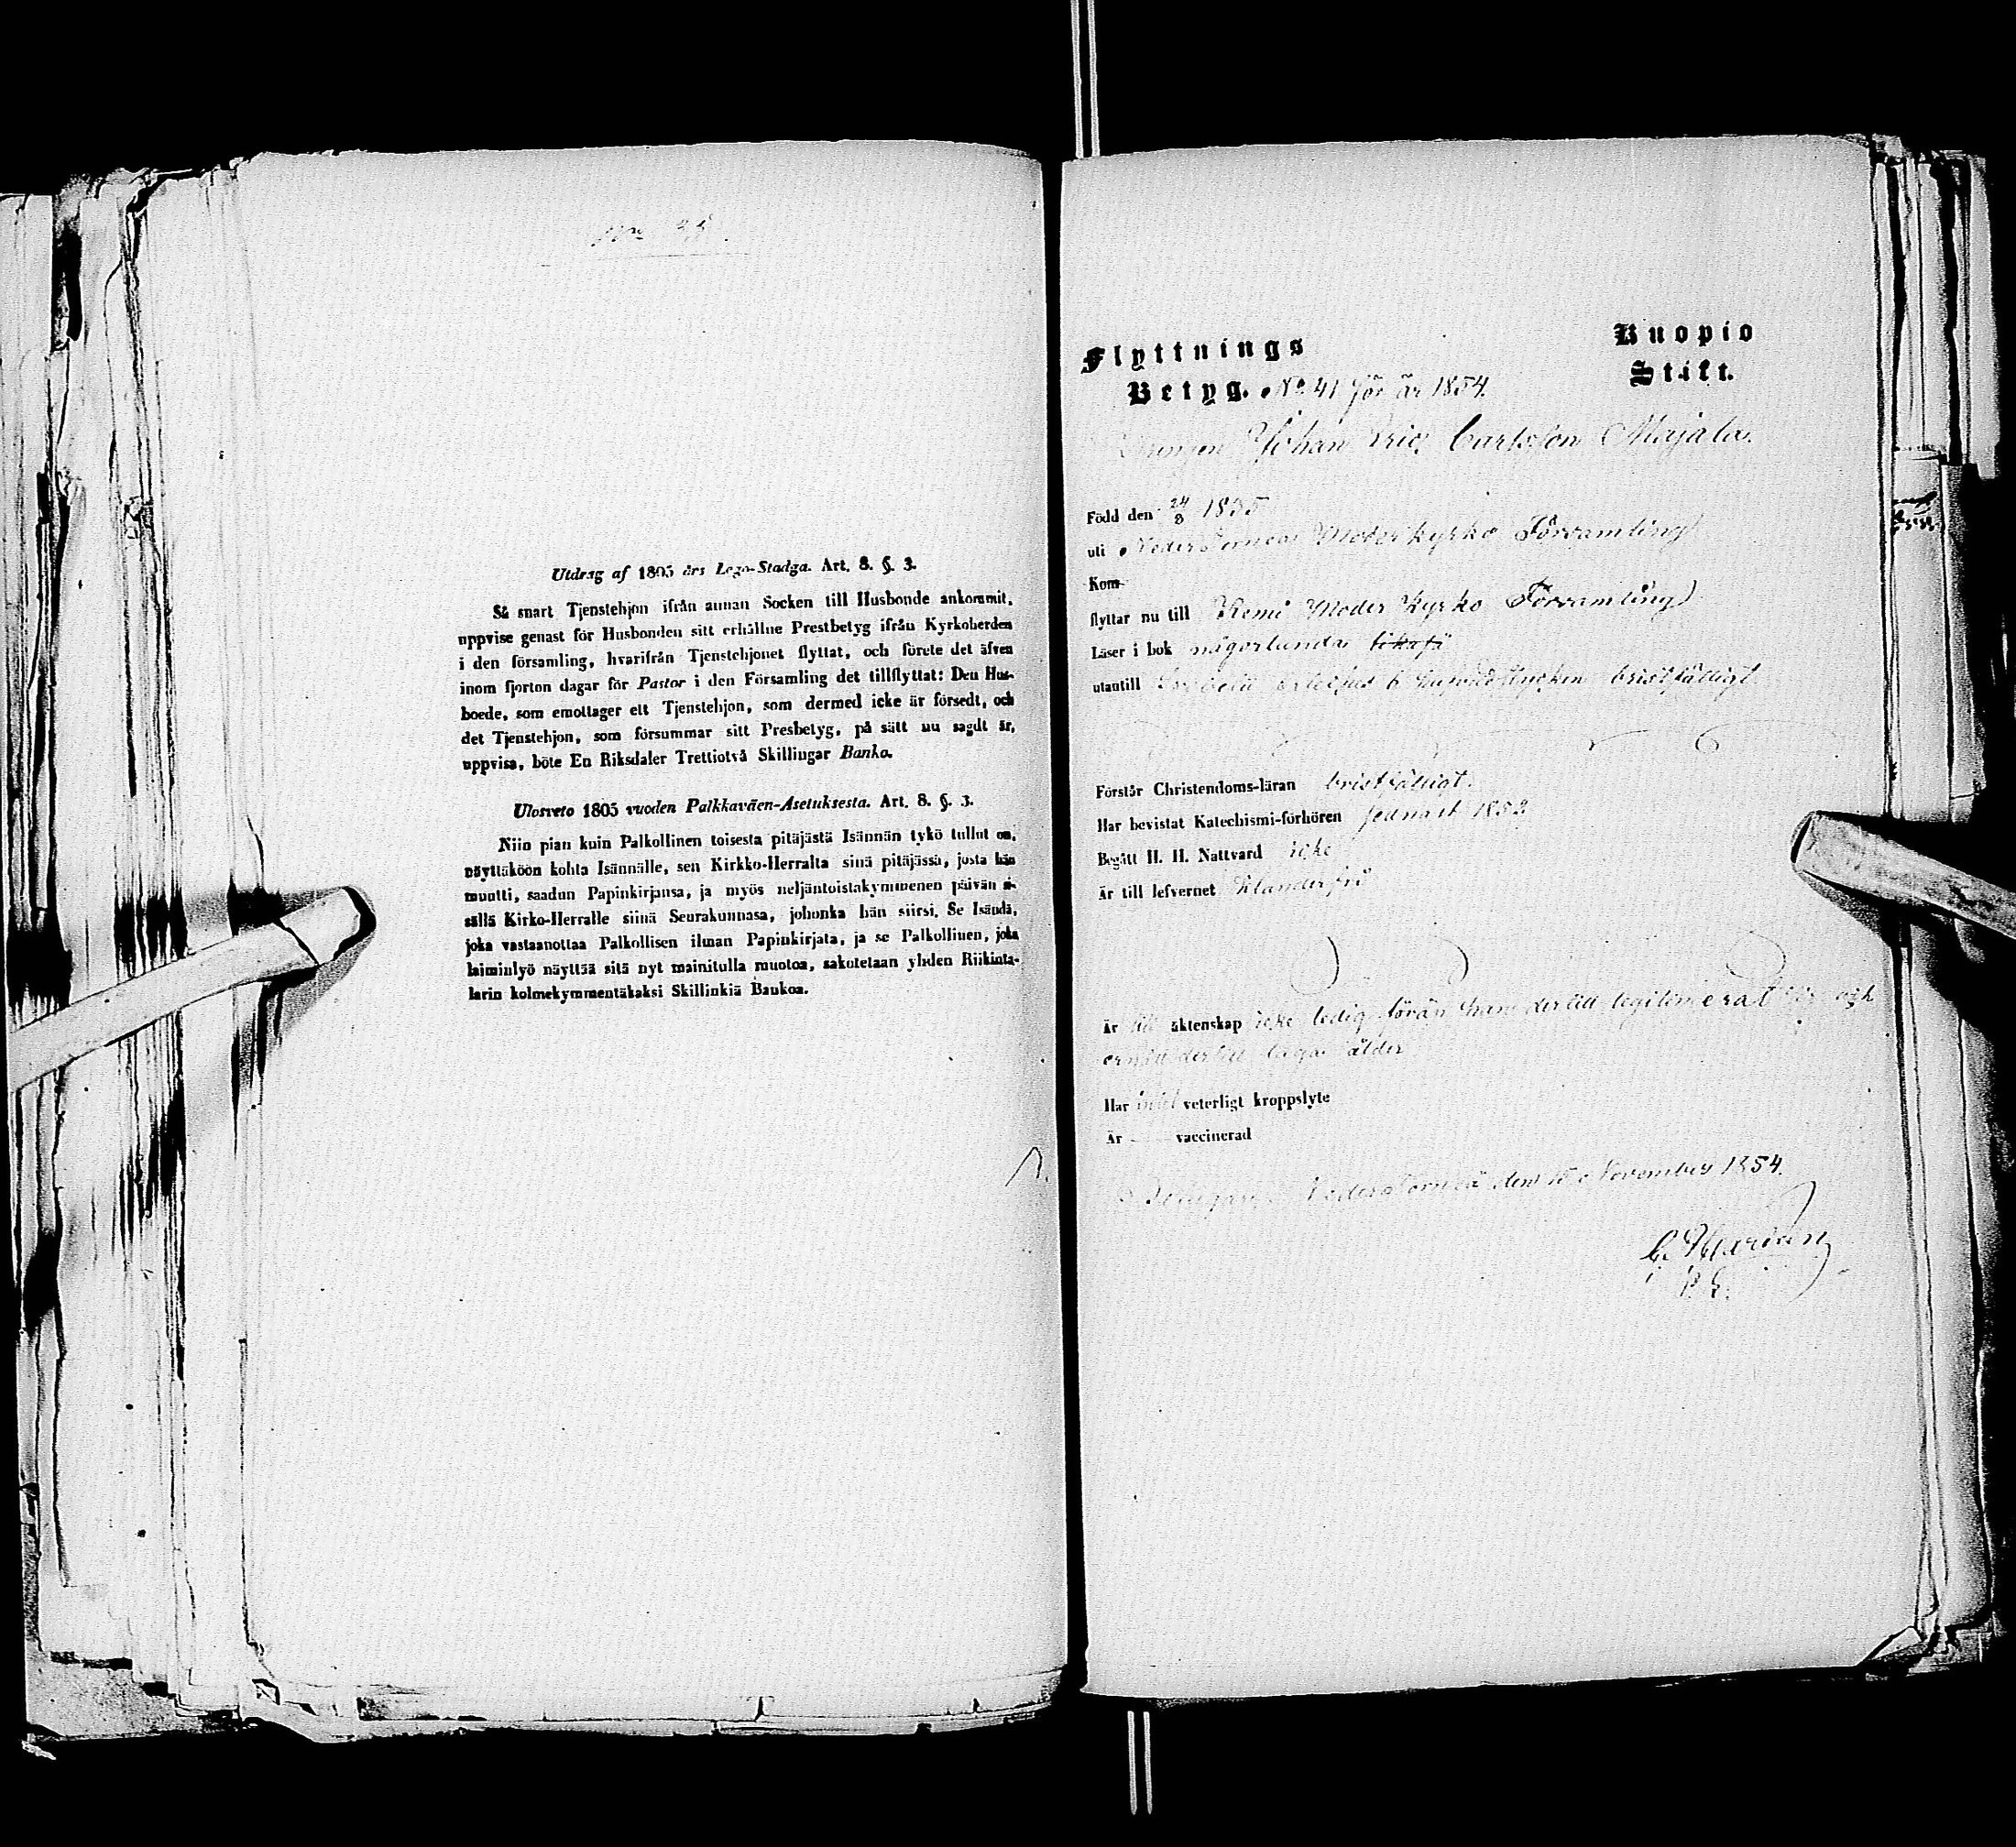 Utdrag af 1805 års Lego-Stadga. Art. 8. §. 3.
Så snart Tjenstehjon ifrån annan Socken till Husbonde ankommit,
uppvise genast för Husbonden sitt erhållne Prestbetyg ifrån Kyrkoherden
i den församling, hvarifrån Tjenstehjonet flyttat, och förete det äfven
inom fjorton dagar för Pastor i den Församling det tillflyttat: Den Hus-
boede, som emottager ett Tjenstehjon, som dermed icke är försedt, och
det Tjenstehjon, som försummar sitt Presbetyg, på sätt nu sagdt är,
uppvisa, böte En Riksdaler Trettiotvå Skillingar Banko.
Ulosveto 1805 vuoden Palkkaväen-Asetuksesta. Art. 8. §. 3.
Niin pian kuin Palkollinen toisesta pitäjästä Isännän tykö tullut on,
näyttäköön kohta Isännälle, sen Kirkko-Herralta siinä pitäjässä, josta hän
muutti, saadun Papinkirjansa, ja myös neljäntoistakymmenen päivän si-
sällä Kirko-Herralle siinä Seurakunnasa, johonka hän siirsi. Se Isändä,
joka vastaanottaa Palkollisen ilman Papinkirjata, ja se Palkollinen, joka
laiminlyö näyttää sitä nyt mainitulla muotoa, sakotetaan yhden Riikinta-
larin kolmekymmentäkaksi Skillinkiä Bankoa.
Flyttnings
Betyg. No 41 för år 1854.
Kuopio
Stift.
Drengen Johan Eric Carlsson Majala.
Född den 24/8 1835
uti Neder Torneå Moderkyrko Församling
Kom
flyttar nu till Kemi Moder Kyrko Församling
Läser i bok någorlunda likaså
utantill bristfälligt
Förstår Christendoms-läran bristfälligt.
Har bevistat Katechismi-förhören sednast 1853
Begått H. H. Nattvard icke
Är till lefvernet klanderfri
Är till äktenskap icke ledig förän han dertill legitimerat sig och
ernått dertill laga ålder
Har intet veterligt kroppslyte
Är vaccinerad
Betygar Neder Torneå den 15 November 1854.
C. Heurlin